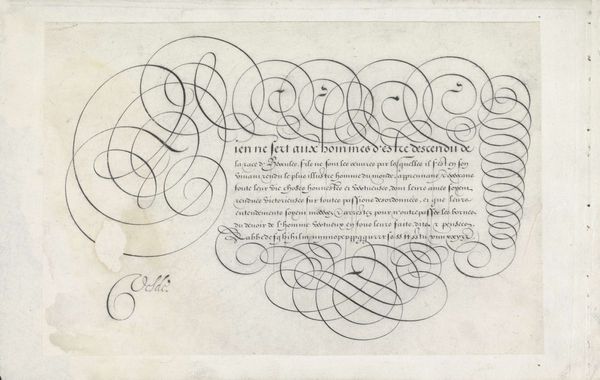 Rien ne sert aux hommes d'estre descendu de
la race d'Hercules, s'ilz ne font les œuvres par lesquelles il s'est en son
vivant rendu le plus illustre homme du monde, apprennant &
toute leur vie choses honnestes et vertueuses, dont leurs ames soyent
rendues victorieuses sur toutes passions desordonnées, et que leurs
entendements soyent moderez & arrestez pour n'outrepasser les bornes
du devoir de l'homme vertueux en tous leurs faits, dits, & pensées.